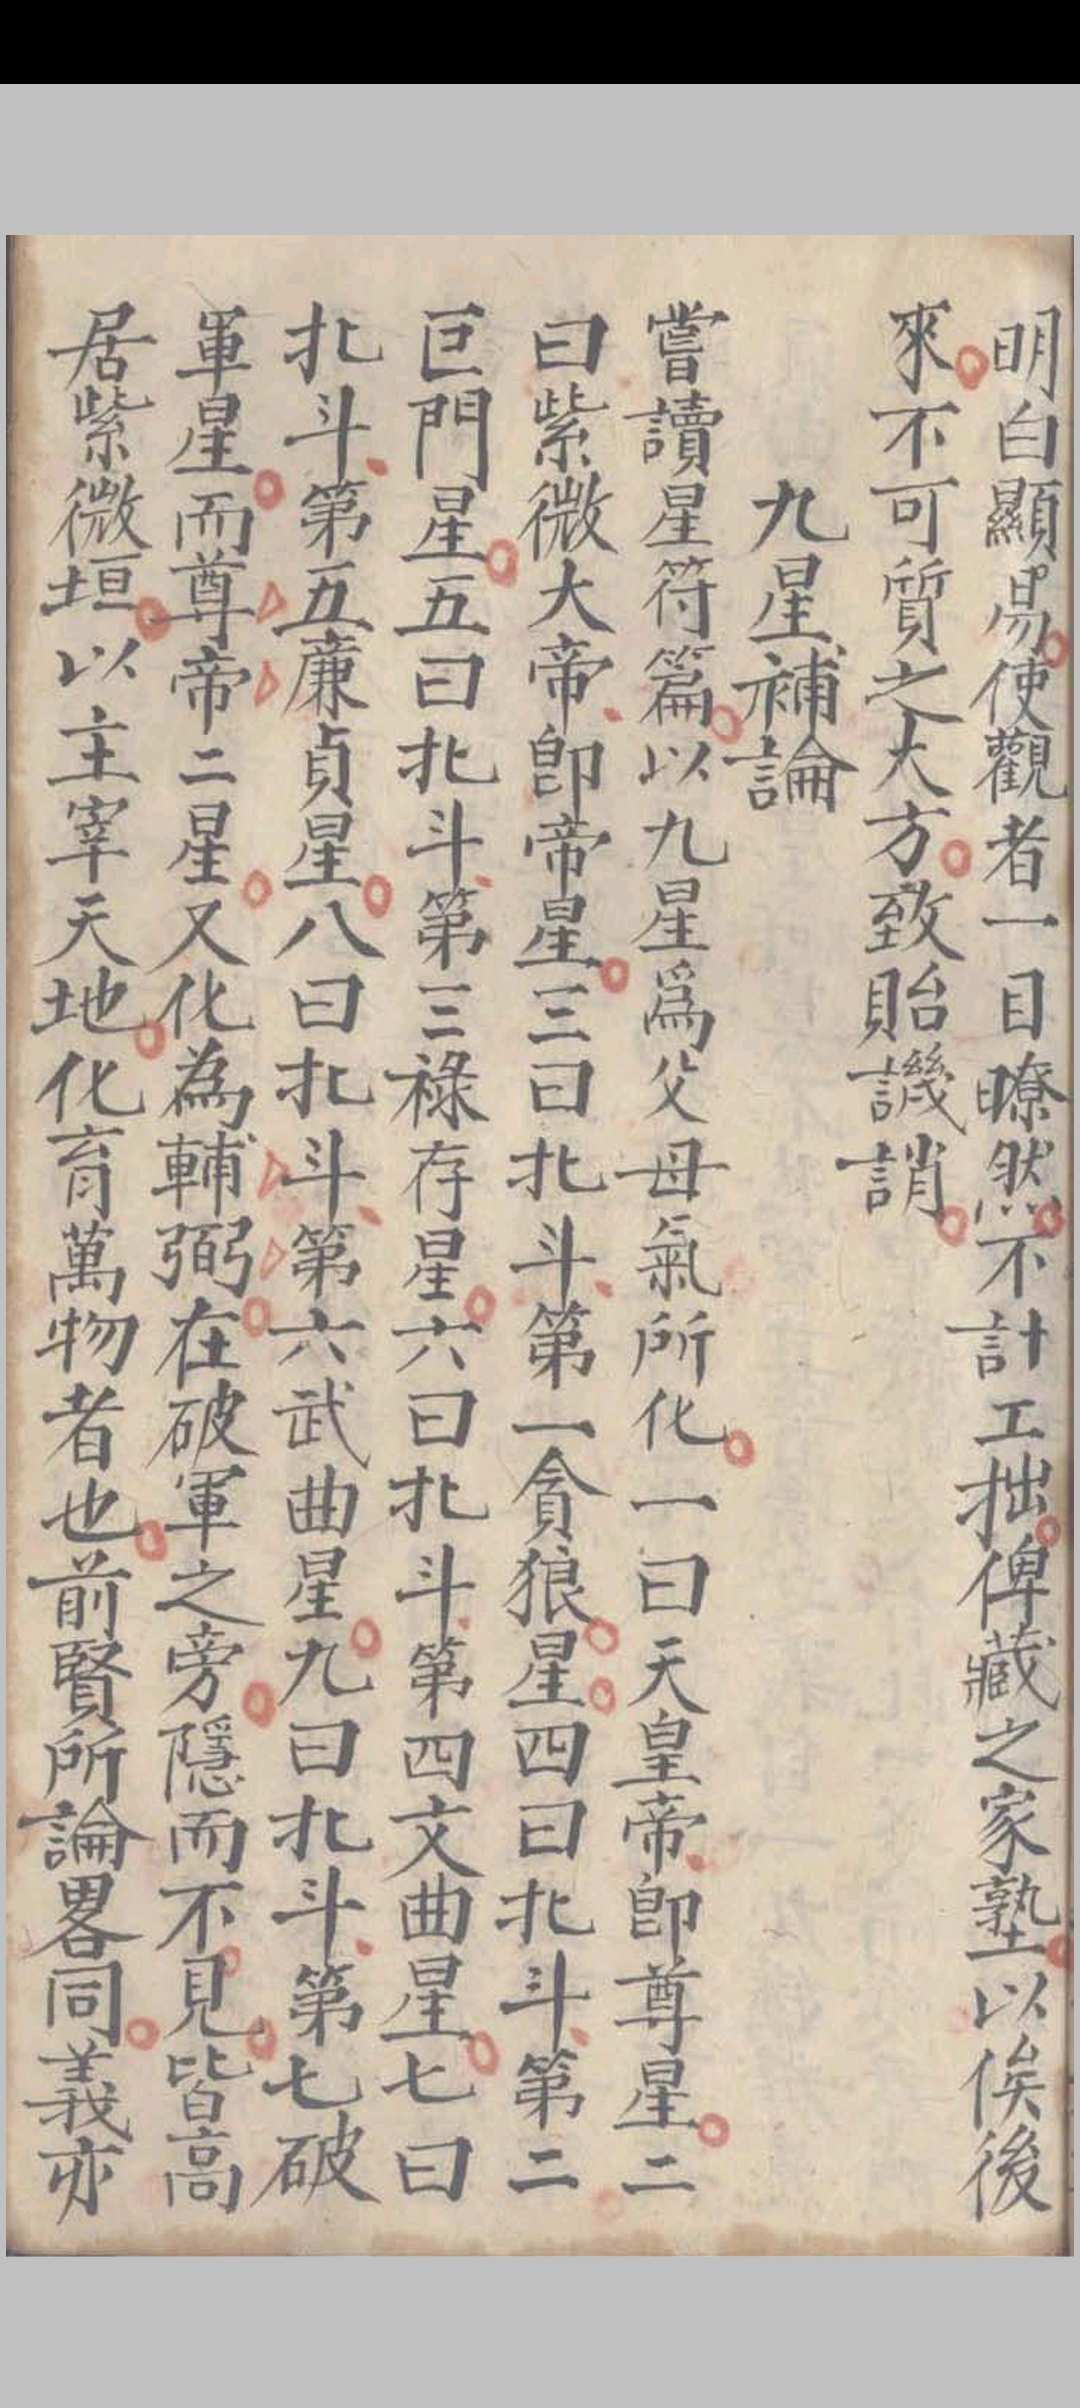 明白顯易使觀者一目瞭然不計工拙俾藏之家塾以俟後
來不可質之大方致貽譏誚
九星補論
嘗讀星符篇以九星爲父母氣所化一曰天皇帝卽尊星二
曰紫微大帝卽帝星三曰北斗第一貪狼星四曰北斗第二
巨門星五曰北斗第三祿存星六曰北斗第四文曲星七曰
北斗第五廉貞星八曰北斗第六武曲星九曰北斗第七破
軍星而尊帝二星又化為輔弼在破軍之旁隱而不見皆高
居紫微垣以主宰天地化育萬物者也前賢所論畧同義亦